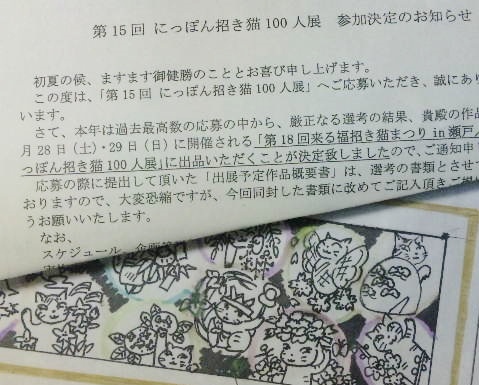 第15回 にっぽん招き猫100人展 参加決定のお知らせ
初夏の候、ますます御健勝のこととお喜び申し上げます。
この度は、「第15回 にっぽん招き猫100人展」へご応募いただき、誠にあり
います。
さて、本年は過去最高数の応募の中から、厳正なる選考の結果、貴殿の作品
月28日(土)・29日(日)に開催される「第18回来る福招き猫まつり in 瀬戸
っぽん招き猫100人展」に出品いただくことが決定致しましたので、ご通知申し
応募の際に提出して頂いた「出展予定作品概要書」は、選考の書類とさせて
おりますので、大変恐縮ですが、今回同封した書類に改めてご記入頂き
うお願いいたします。
なお、
スケジュール